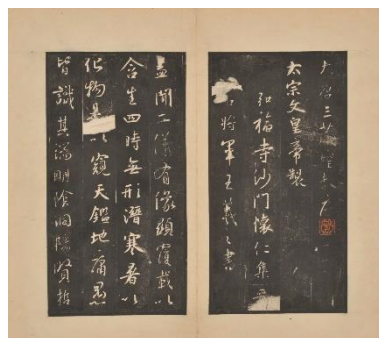 大唐三藏聖教序
太宗文皇帝製
弘福寺沙門懷仁集
將軍王羲之書
蓋聞二儀有像顯覆載以
含生四時無形潛寒暑以
化物是以窺天鑑地庸愚
皆識其端明陰洞陽賢哲